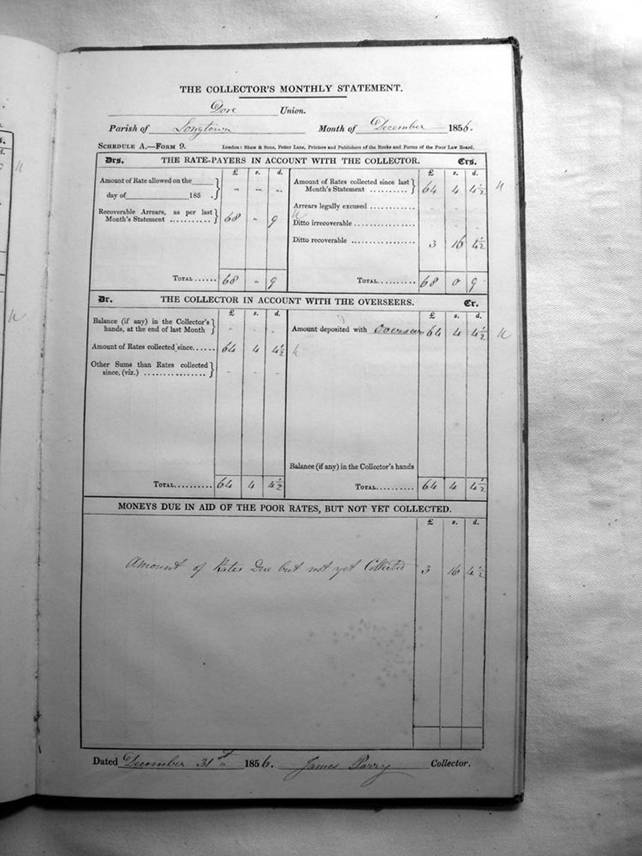 THE COLLECTOR'S MONTHLY STATEMENT.
Dore Union.
Parish of Longtown Month of December 1856.
SCHEDULE A.—FORM 9. London: Shaw & Sons, Fetter Lane, Printers and Publishers of the Books and Forms of the Poor Law Board.
Drs. THE RATE-PAYERS IN ACCOUNT WITH THE COLLECTOR. Crs.
£ s. d. £ s. d.
Amount of Rate allowed on the
day of 185 . - - -
Recoverable Arrears, as per last
Month's Statement 68 - 9
Total 68 - 9
Amount of Rates collected since last
Month's Statement 64 4 4½
Arrears legally excused
Ditto irrecoverable
Ditto recoverable 3 16 4½
Total 68 0 9
Dr. THE COLLECTOR IN ACCOUNT WITH THE OVERSEERS. Cr.
£ s. d. £ s. d.
Balance (if any) in the Collector's
hands, at the end of last Month - - -
Amount of Rates collected since 64 4 4½
Other Sums than Rates collected
since, (viz.)
Total 64 4 4½
Amount deposited with overseer 64 4 4½
Balance (if any) in the Collector's hands
Total 64 4 4½
MONEYS DUE IN AID OF THE POOR RATES, BUT NOT YET COLLECTED.
£ s. d.
Amount of Rates Due but not yet Collected 3 16 4½
Dated December 31st 1856. James Parry Collector.